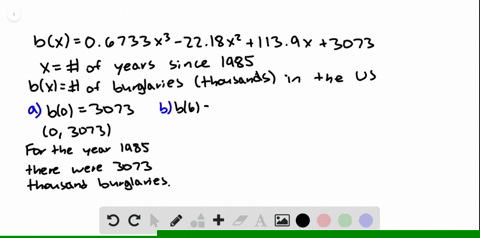 b(x)=0.6733x³-22.18x²+113.9x+3073
x=# of years since 1985
b(x)=# of burglaries (thousands) in the US
a) b(0)=3073 b) b(6)-
(0,3073)
For the year 1985
there were 3073
thousand burglaries.